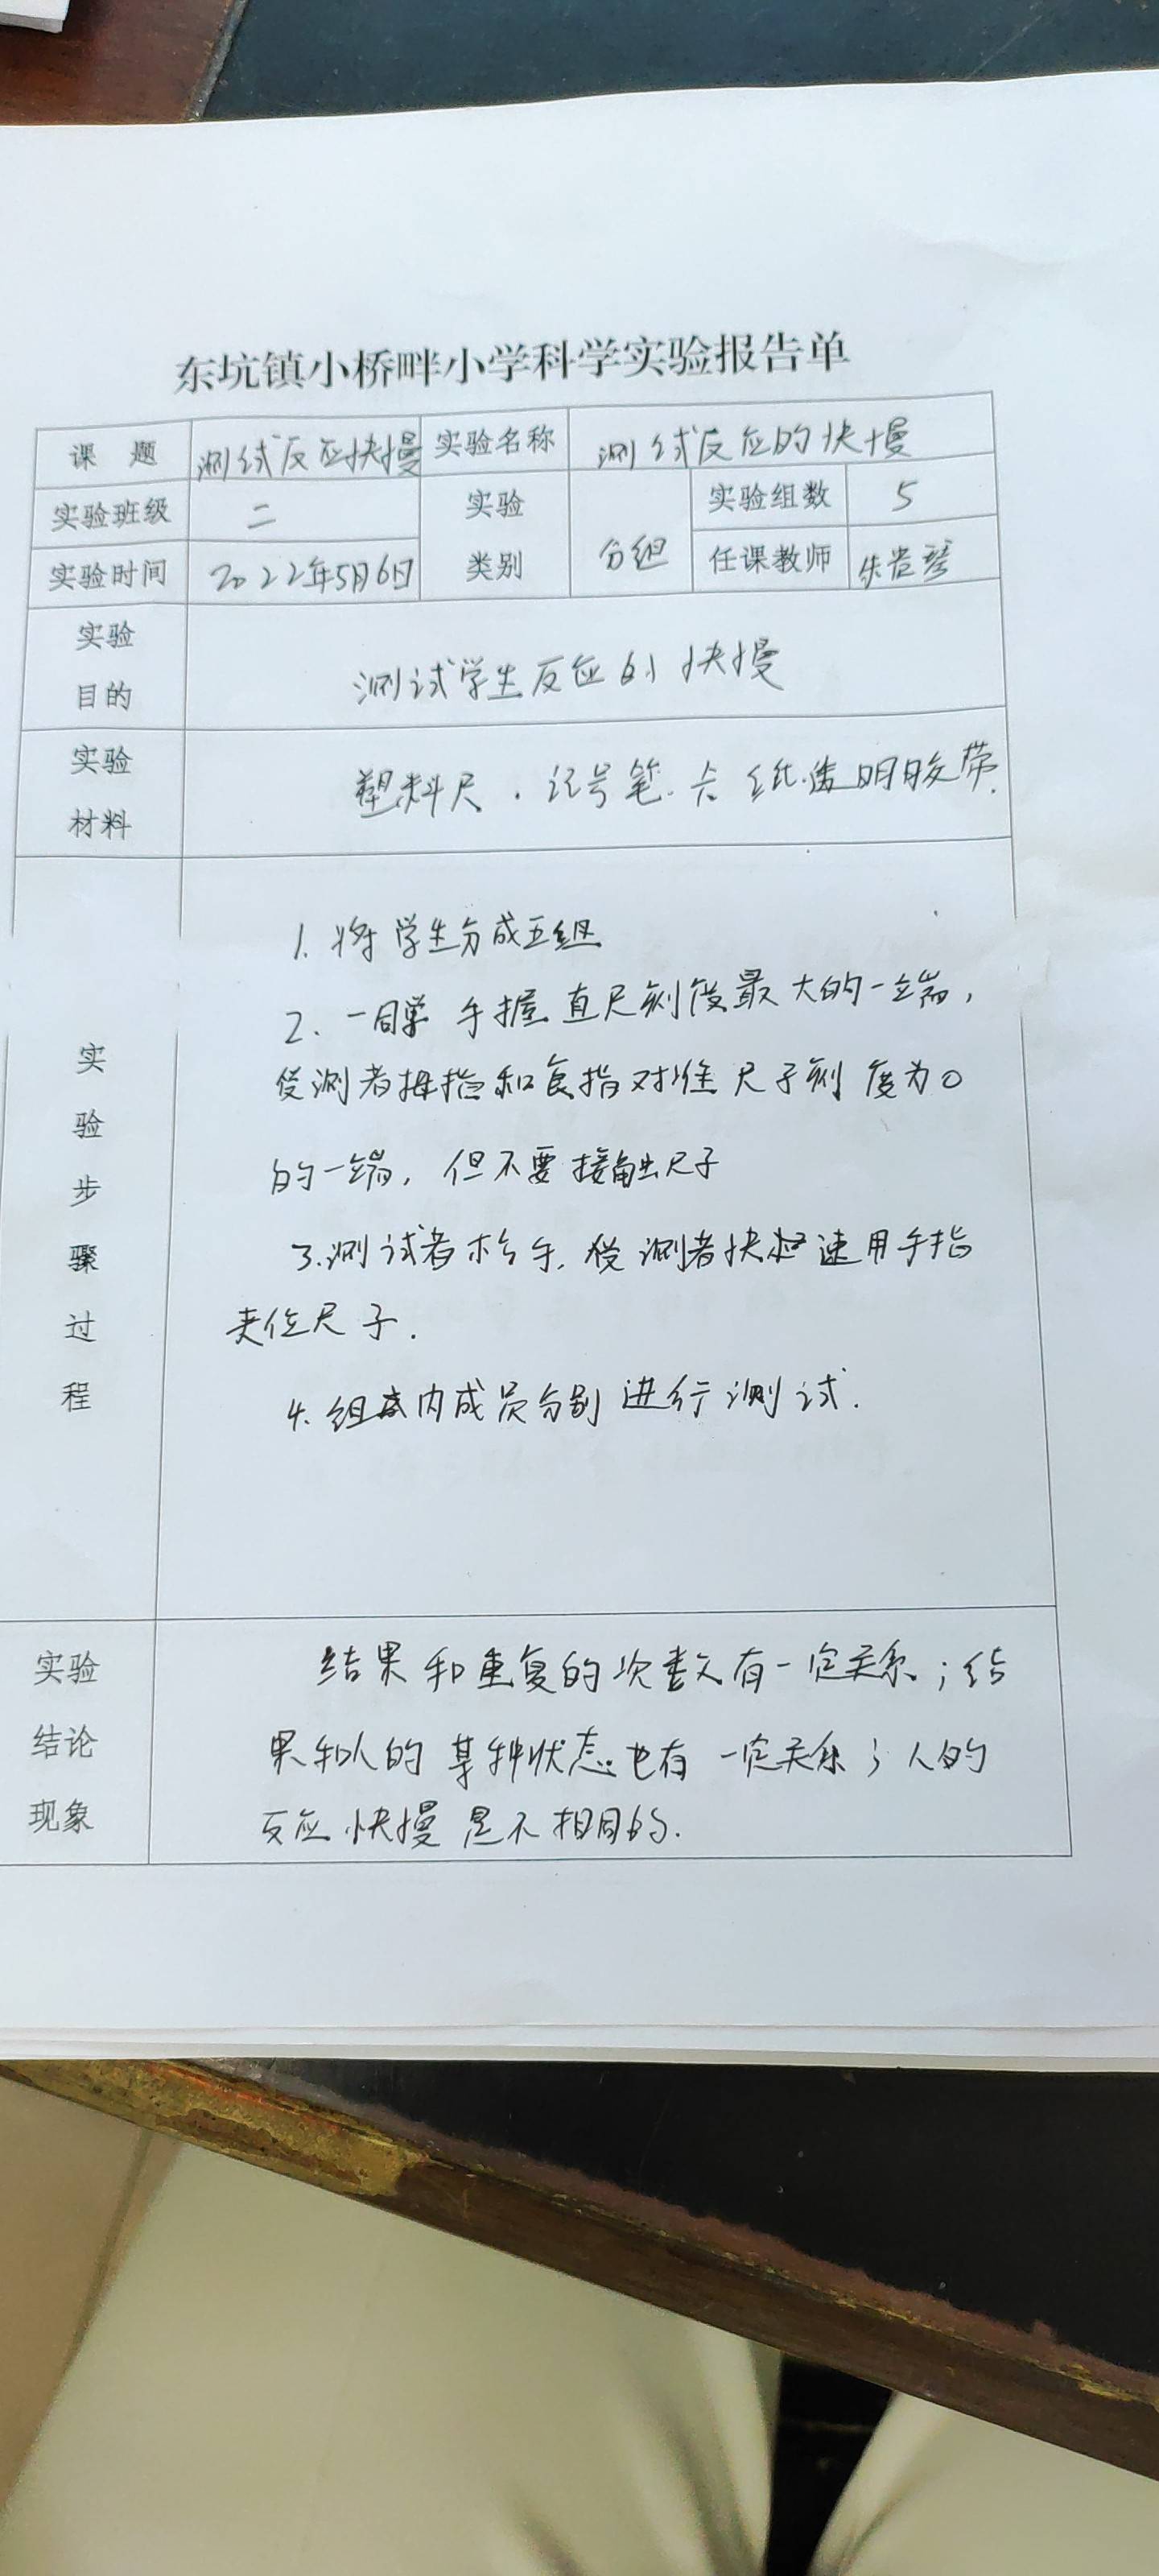 东坑镇小桥畔小学科学实验报告单
课 题 测试反应快慢 实验名称 测试反应的快慢
实验班级 二 实验类别 分组 实验组数 5
实验时间 2022年5月6日 任课教师 朱
实验目的 测试学生反应的快慢
实验材料 塑料尺.记号笔.卡纸.透明胶带.
实验步骤过程
1. 将学生分成五组
2. 一同学 手握直尺刻度最大的一端,
受测者拇指和食指对准尺子刻度为0
的一端, 但不要接触尺子
3.测试者松手. 受测者快速用手指
夹住尺子.
4. 组内成员分别进行测试.
实验结论现象
结果和重复的次数有一定关系;结
果和人的某种状态也有一定关系;人的
反应快慢是不相同的.